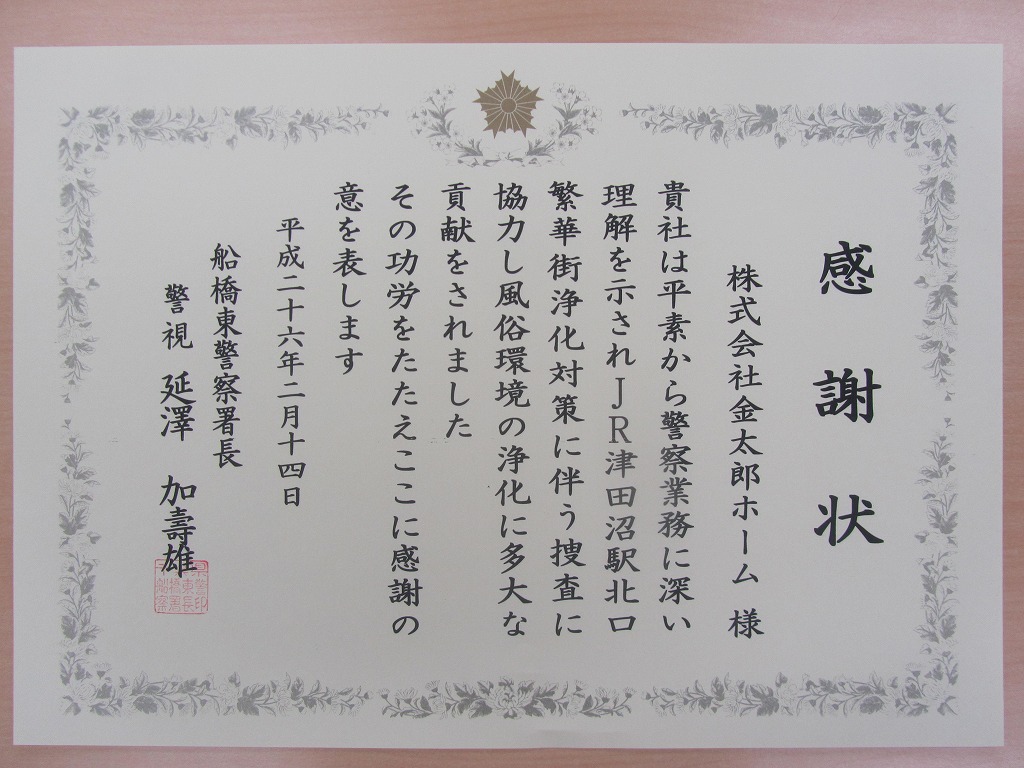 感謝状
株式会社金太郎ホーム 様
貴社は平素から警察業務に深い
理解を示されJR津田沼駅北口
繁華街浄化対策に伴う捜査に
協力し風俗環境の浄化に多大な
貢献をされました
その功労をたたえここに感謝の
意を表します
平成二十六年二月十四日
船橋東警察署長
警視 延澤 加壽雄